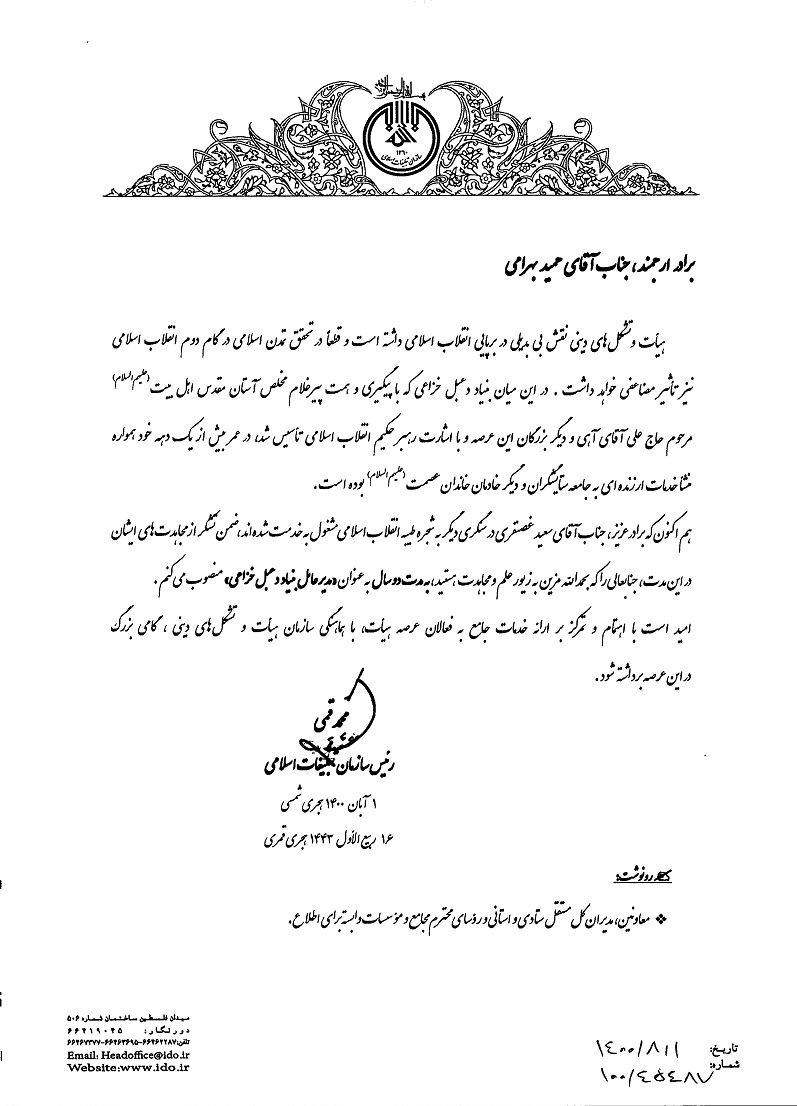 ۱۳۶۰
سازمان تبلیغات اسلامی
برادر ارجمند، جناب آقای حمید بهرامی
هیأت و تشکل‌های دینی نقش بی بدیلی در برپایی انقلاب اسلامی داشته است و قطعاً در تحقق تمدن اسلامی در گام دوم انقلاب اسلامی
نیز تأثیر مضاعفی خواهد داشت . در این میان بنیاد دعبل خزاعی که با پیگیری و همت پیرغلام مخلص آستان مقدس اهل بیت (علیهم‌السلام)
مرحوم حاج علی آقای آهی و دیگر بزرگان این عرصه و با اشارت رهبر حکیم انقلاب اسلامی تأسیس شد، در عمر بیش از یک دهه خود همواره
منشأ خدمات ارزنده ای به جامعه ستایشگران و دیگر خادمان خاندان عصمت (علیهم‌السلام) بوده است.
هم اکنون که برادر عزیز، جناب آقای سعید غضنفری در سنگری دیگر به شجره طیبه انقلاب اسلامی مشغول به خدمت شده‌اند، ضمن تشکر از مجاهدت‌های ایشان
در این مدت، جنابعالی را که بحمدالله مزین به زیور علم و مجاهدت هستید، به مدت دو سال به عنوان «مدیرعامل بنیاد دعبل خزاعی» منصوب می‌کنم .
امید است با اهتمام و تمرکز بر ارائه خدمات جامع به فعالان عرصه هیأت، با هماهنگی سازمان هیأت و تشکل‌های دینی ، گامی بزرگ
در این عرصه برداشته شود.
محمد قمی
رئیس سازمان تبلیغات اسلامی
۱ آبان ۱۴۰۰ هجری شمسی
۱۶ ربیع الأول ۱۴۴۳ هجری قمری
رونوشت:
❖ معاونین، مدیران کل مستقل ستادی و استانی و رؤسای محترم مجامع و مؤسسات وابسته برای اطلاع.
میدان فلسطین ساختمان شماره ۵۰۶
دورنگار: ۶۶۴۱۹۰۲۵
تلفن: ۶۶۴۶۲۲۸۷-۶۶۴۶۳۶۹۵-۶۶۴۶۷۳۷۷
Email: Headoffice@ido.ir
Website:www.ido.ir
تاریخ: ۱۴۰۰/۸/۱
شماره: ۱۰۰/۴۵۴۸۷